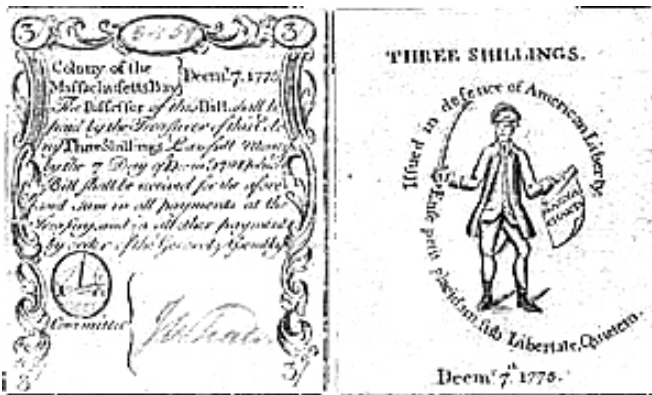 3
3
Colony of the
Massachusetts Bay
Decm. 7. 1775
The Possessor of this Bill shall be
paid by the Treasurer of this Colo
ny Three Shillings Lawfull Money
by the 7 Day of Decm. which
Bill shall be received for the afore
said Sum in all payments at the
Treasury and in all other payments
by order of the General Assembly
Committee
3
3
THREE SHILLINGS.
Issued in defence of American Liberty.
Ense petit placidam, sub Libertate, Quietem.
MAGNA
CHARTA
Decmr. 7th. 1775.